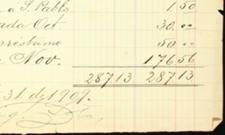 a S. Pablo 1 50
ada Oct 30.00
préstamo 50.00
Nov. 176 56
287 13 287 13
31 de 1909.